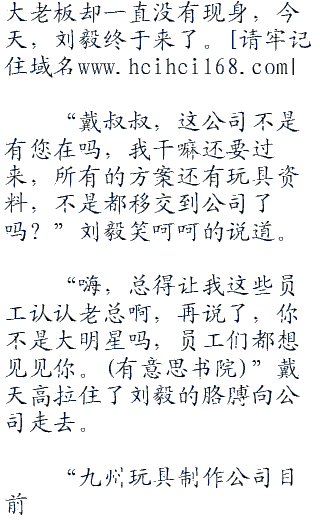 大老板却一直没有现身，今
天，刘毅终于来了。[请牢记
住域名www.hcihcil68.com|
“戴叔叔，这公司不是
有您在吗，我干嘛还要过
来，所有的方案还有玩具资
料，不是都移交到公司了
吗？”刘毅笑呵呵的说道。
“嗨，总得让我这些员
工认认老总啊，再说了，你
不是大明星吗，员工们都想
见见你。(有意思书院)”戴
天高拉住了刘毅的胳膊向公
司走去。
“九州玩具制作公司目
前